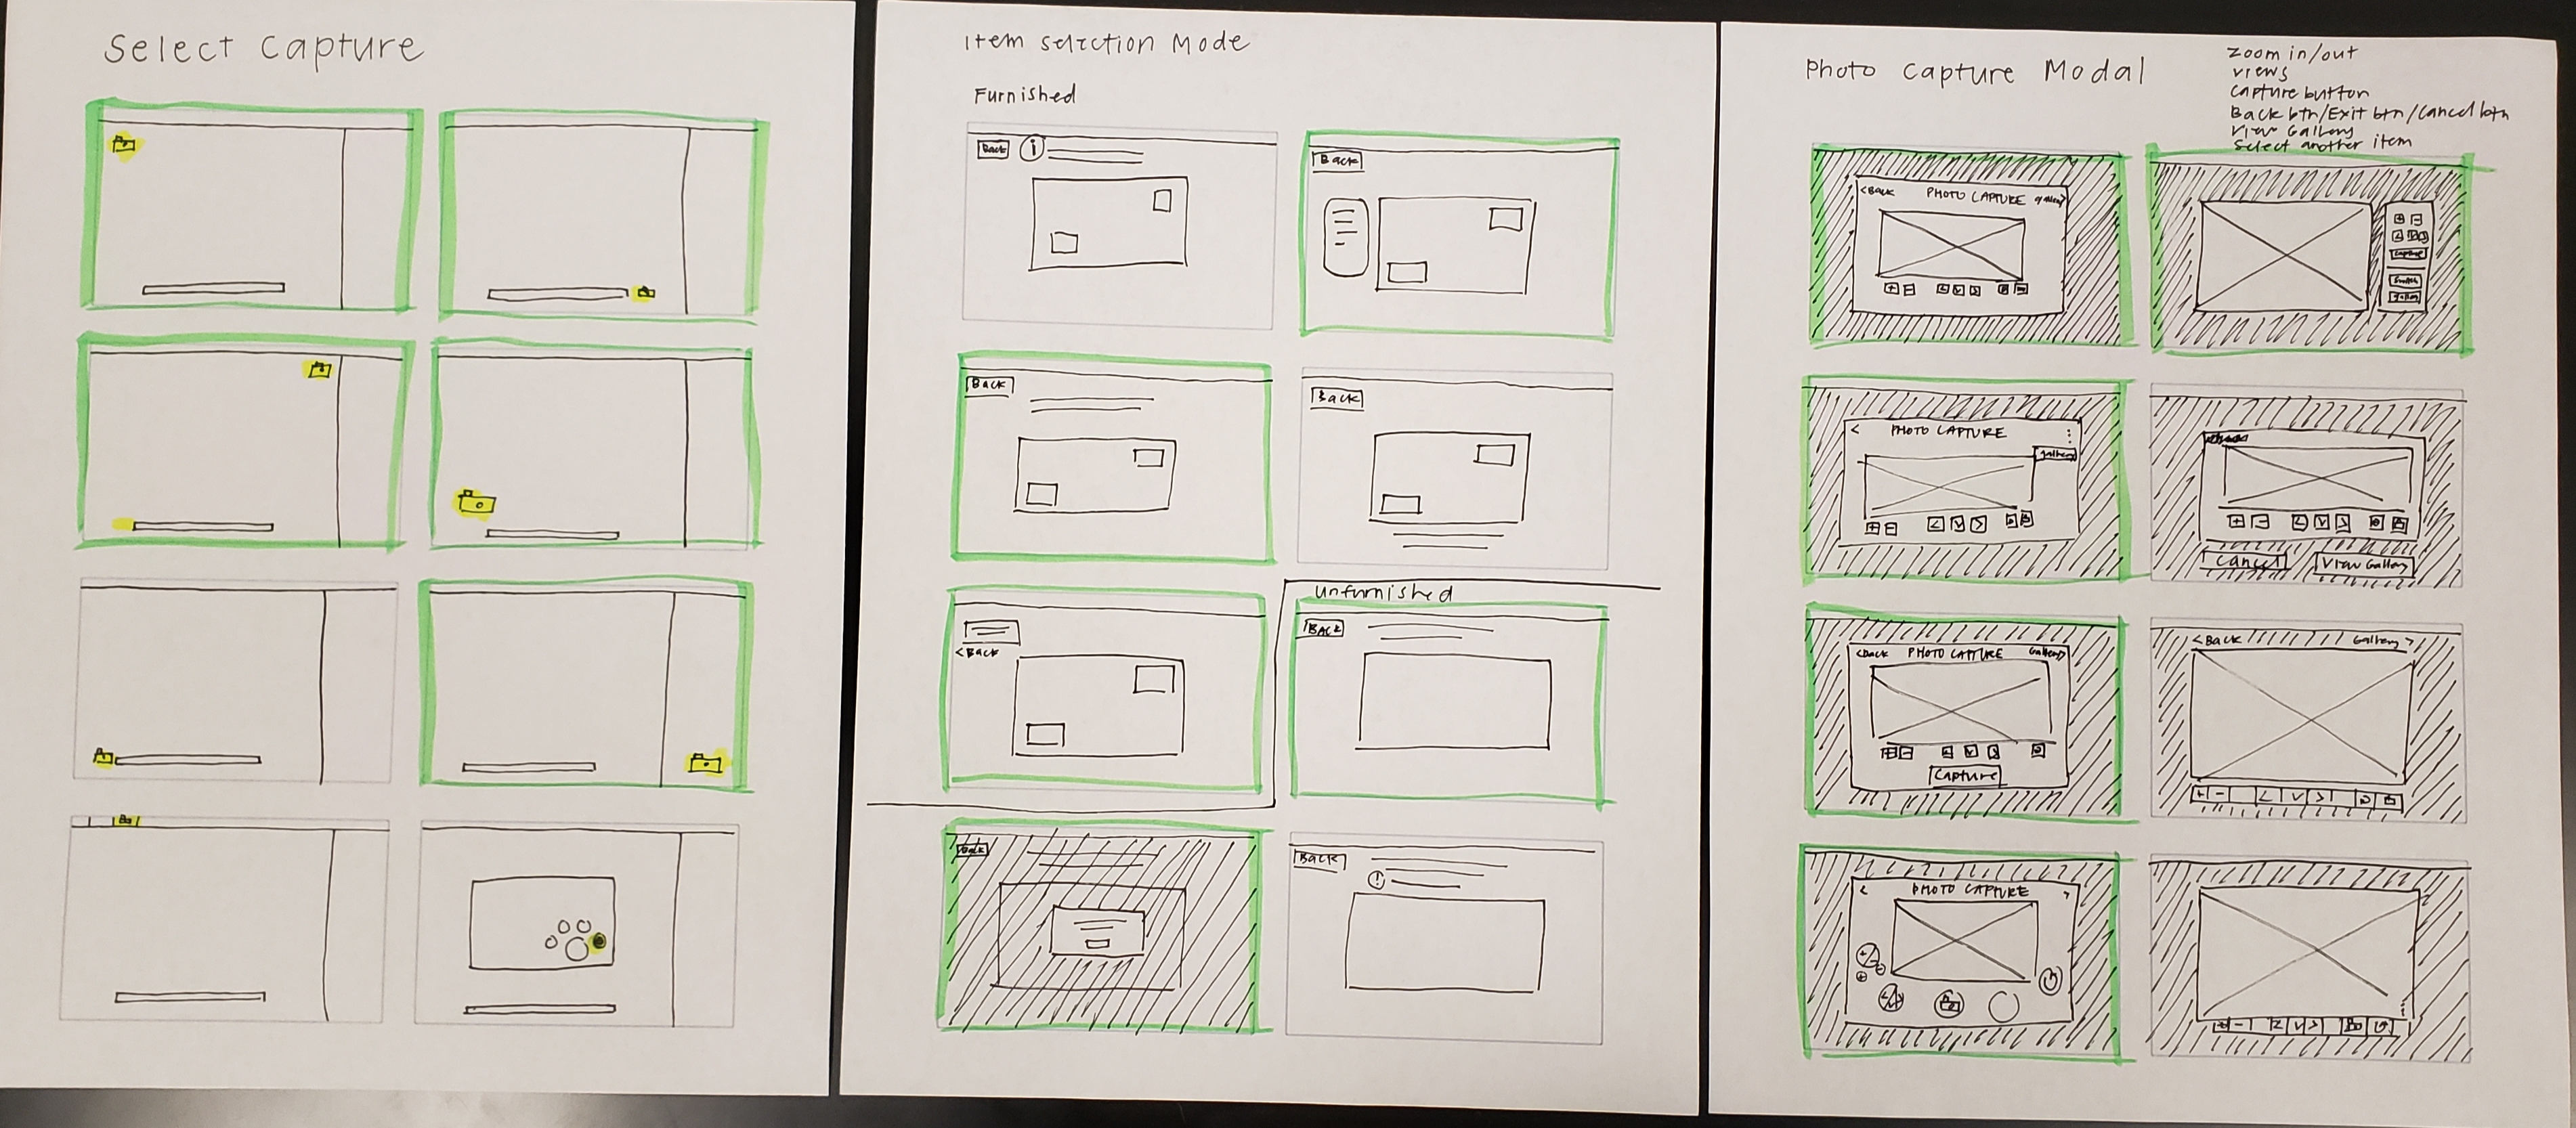 Select Capture
Item Selection Mode
Furnished
Back
i
Back
Back
Back
< Back
Unfurnished
BACK
Back
BACK
!
Photo Capture Modal
Zoom in/out
Views
Capture button
Back btn/Exit btn/Cancel btn
View Gallery
Select another item
<Back PHOTO CAPTURE gallery>
+ -
< v >
+ -
Capture
Switch
< PHOTO CAPTURE
gallery
+ - < v >
+ - < v >
Cancel View Gallery
<Back PHOTO CAPTURE Gallery>
+ - < v >
Capture
<Back Gallery >
+ - < v >
< PHOTO CAPTURE >
+ - < v >